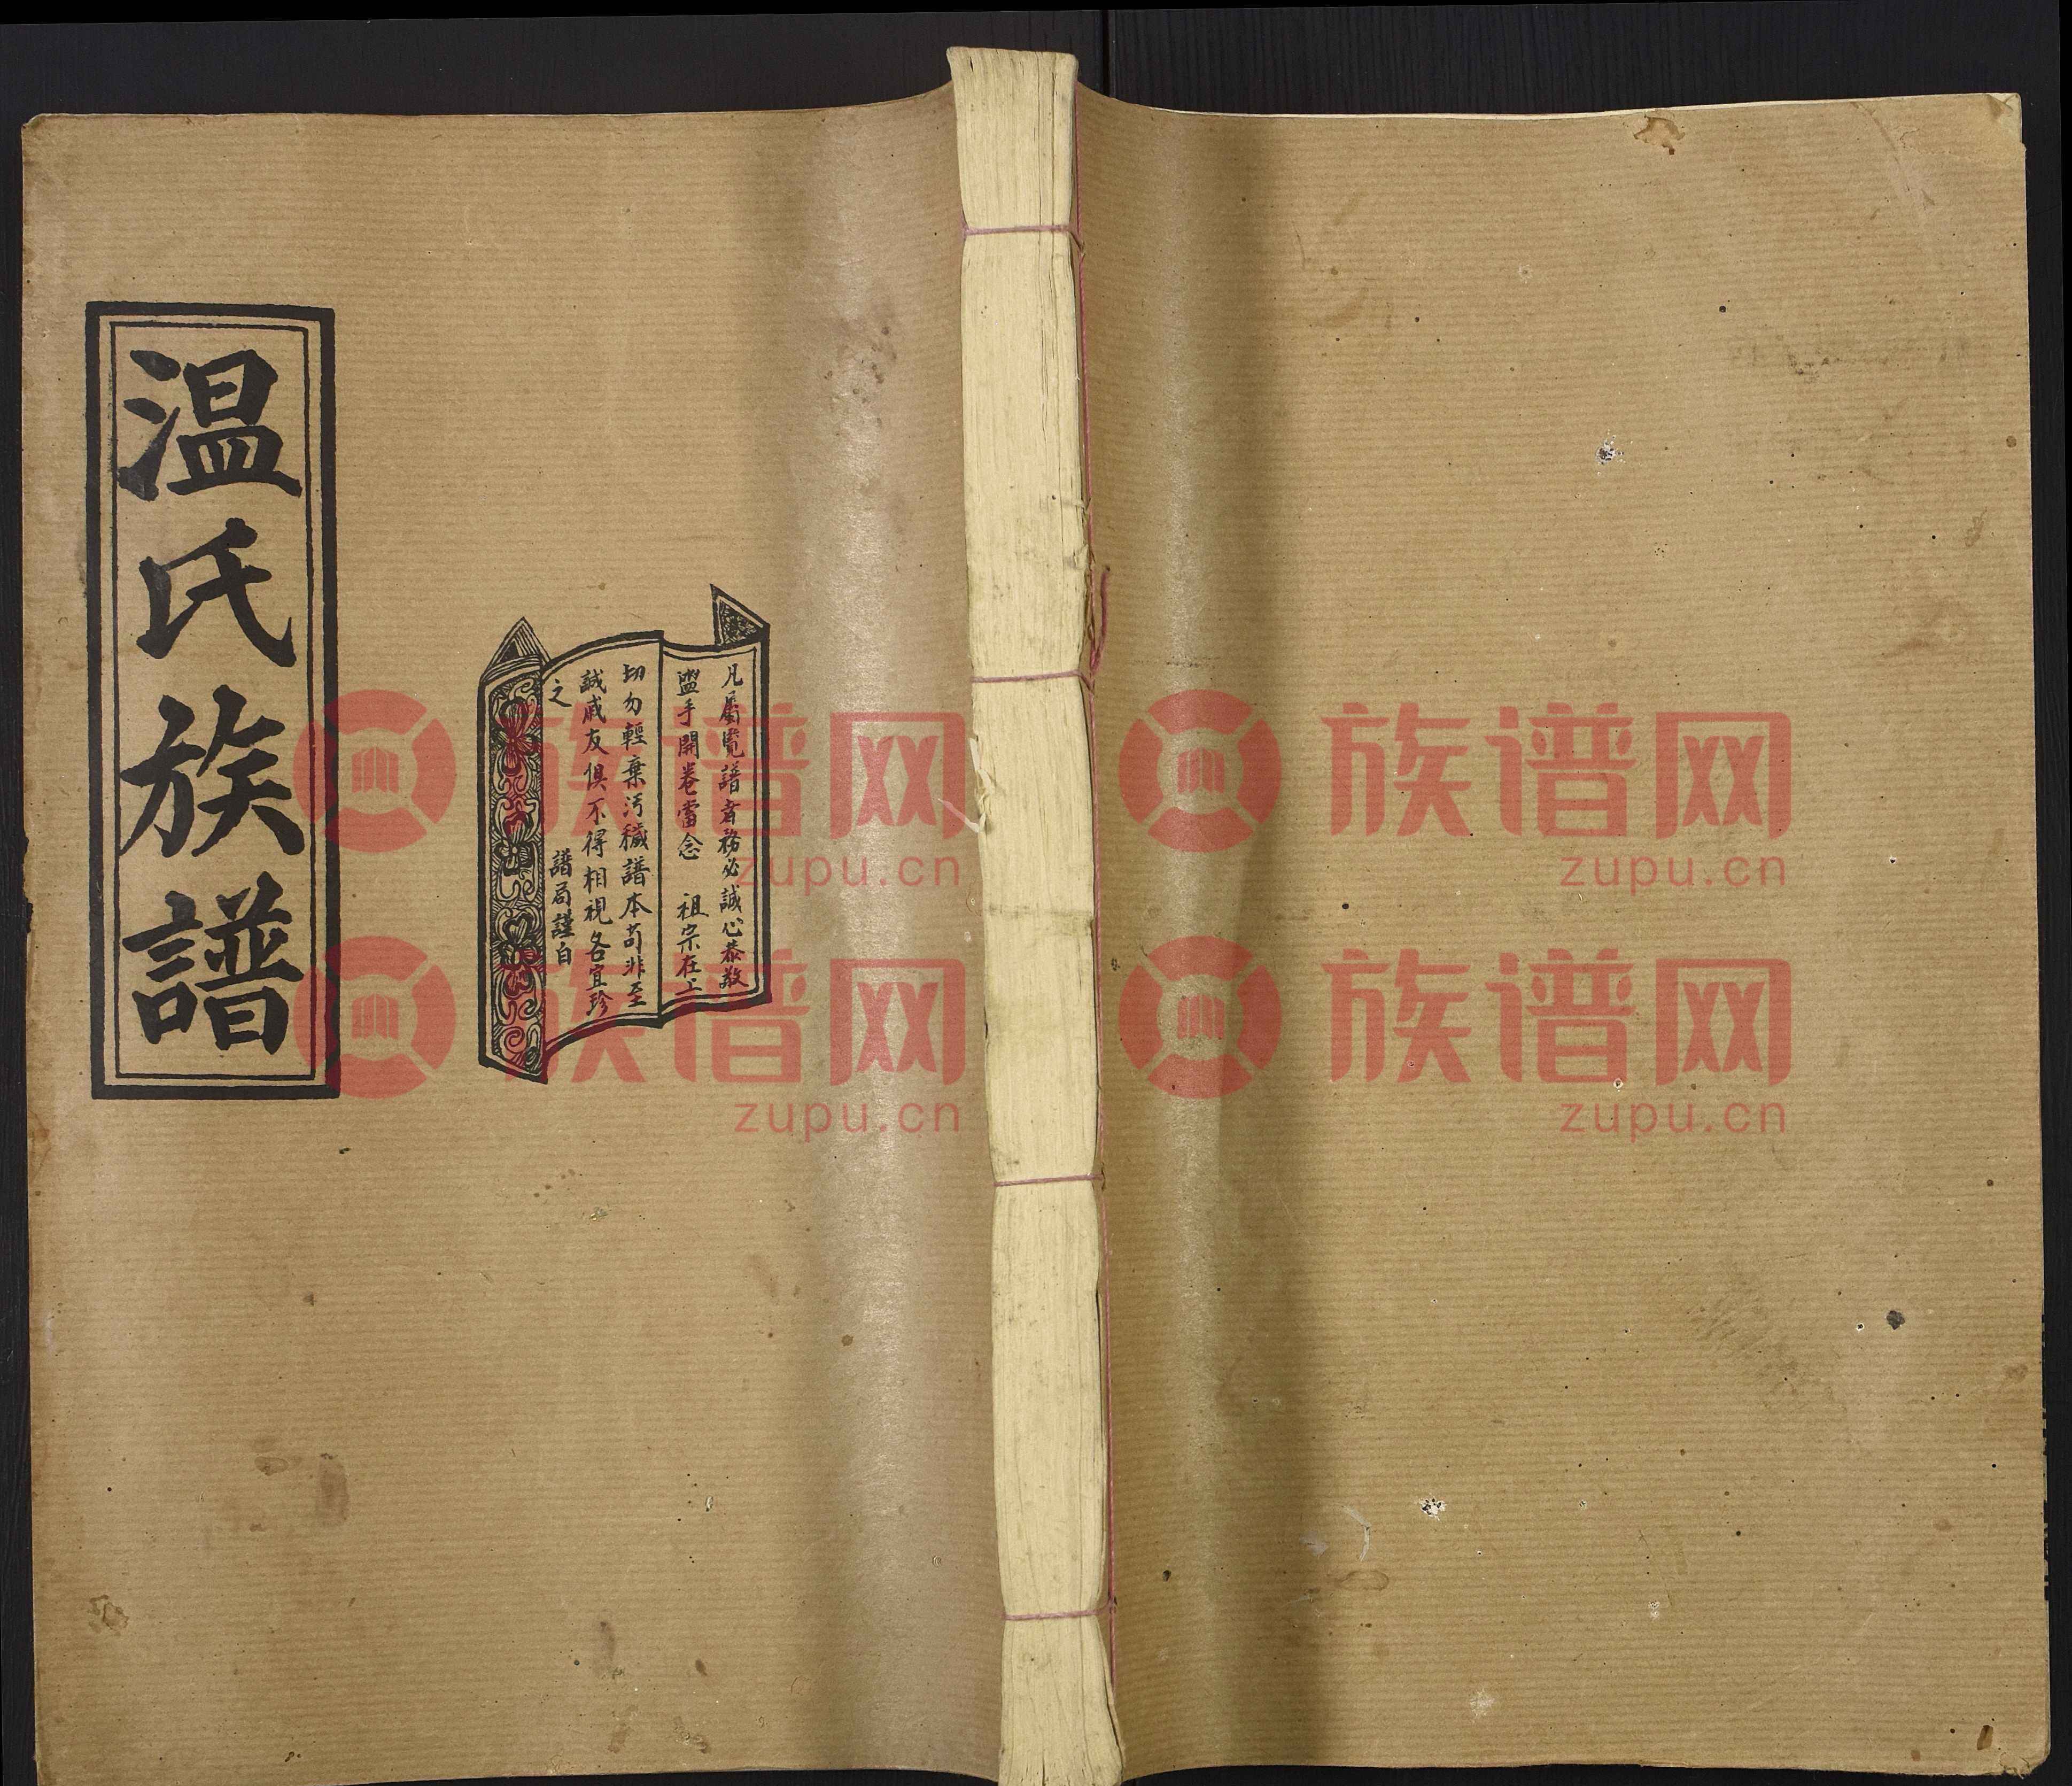 温氏族譜
凡屬覽譜者務必誠心恭敬
盥手開卷當念 祖宗在上
切勿輕棄污穢譜本苟非至
誠戚友俱不得相視各宜珍
之
譜局謹白
族谱网
zupu.cn
族谱网
zupu.cn
族谱网
zupu.cn
族谱网
zupu.cn